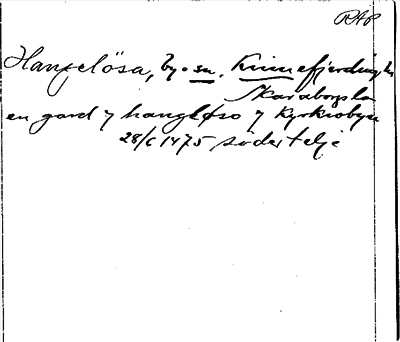 RAP
Hangelösa, by o. sn, Kinnefjerdings
Skaraborgs la
en gard j hangløso j kyrkiobyn
28/6 1475 södertelje